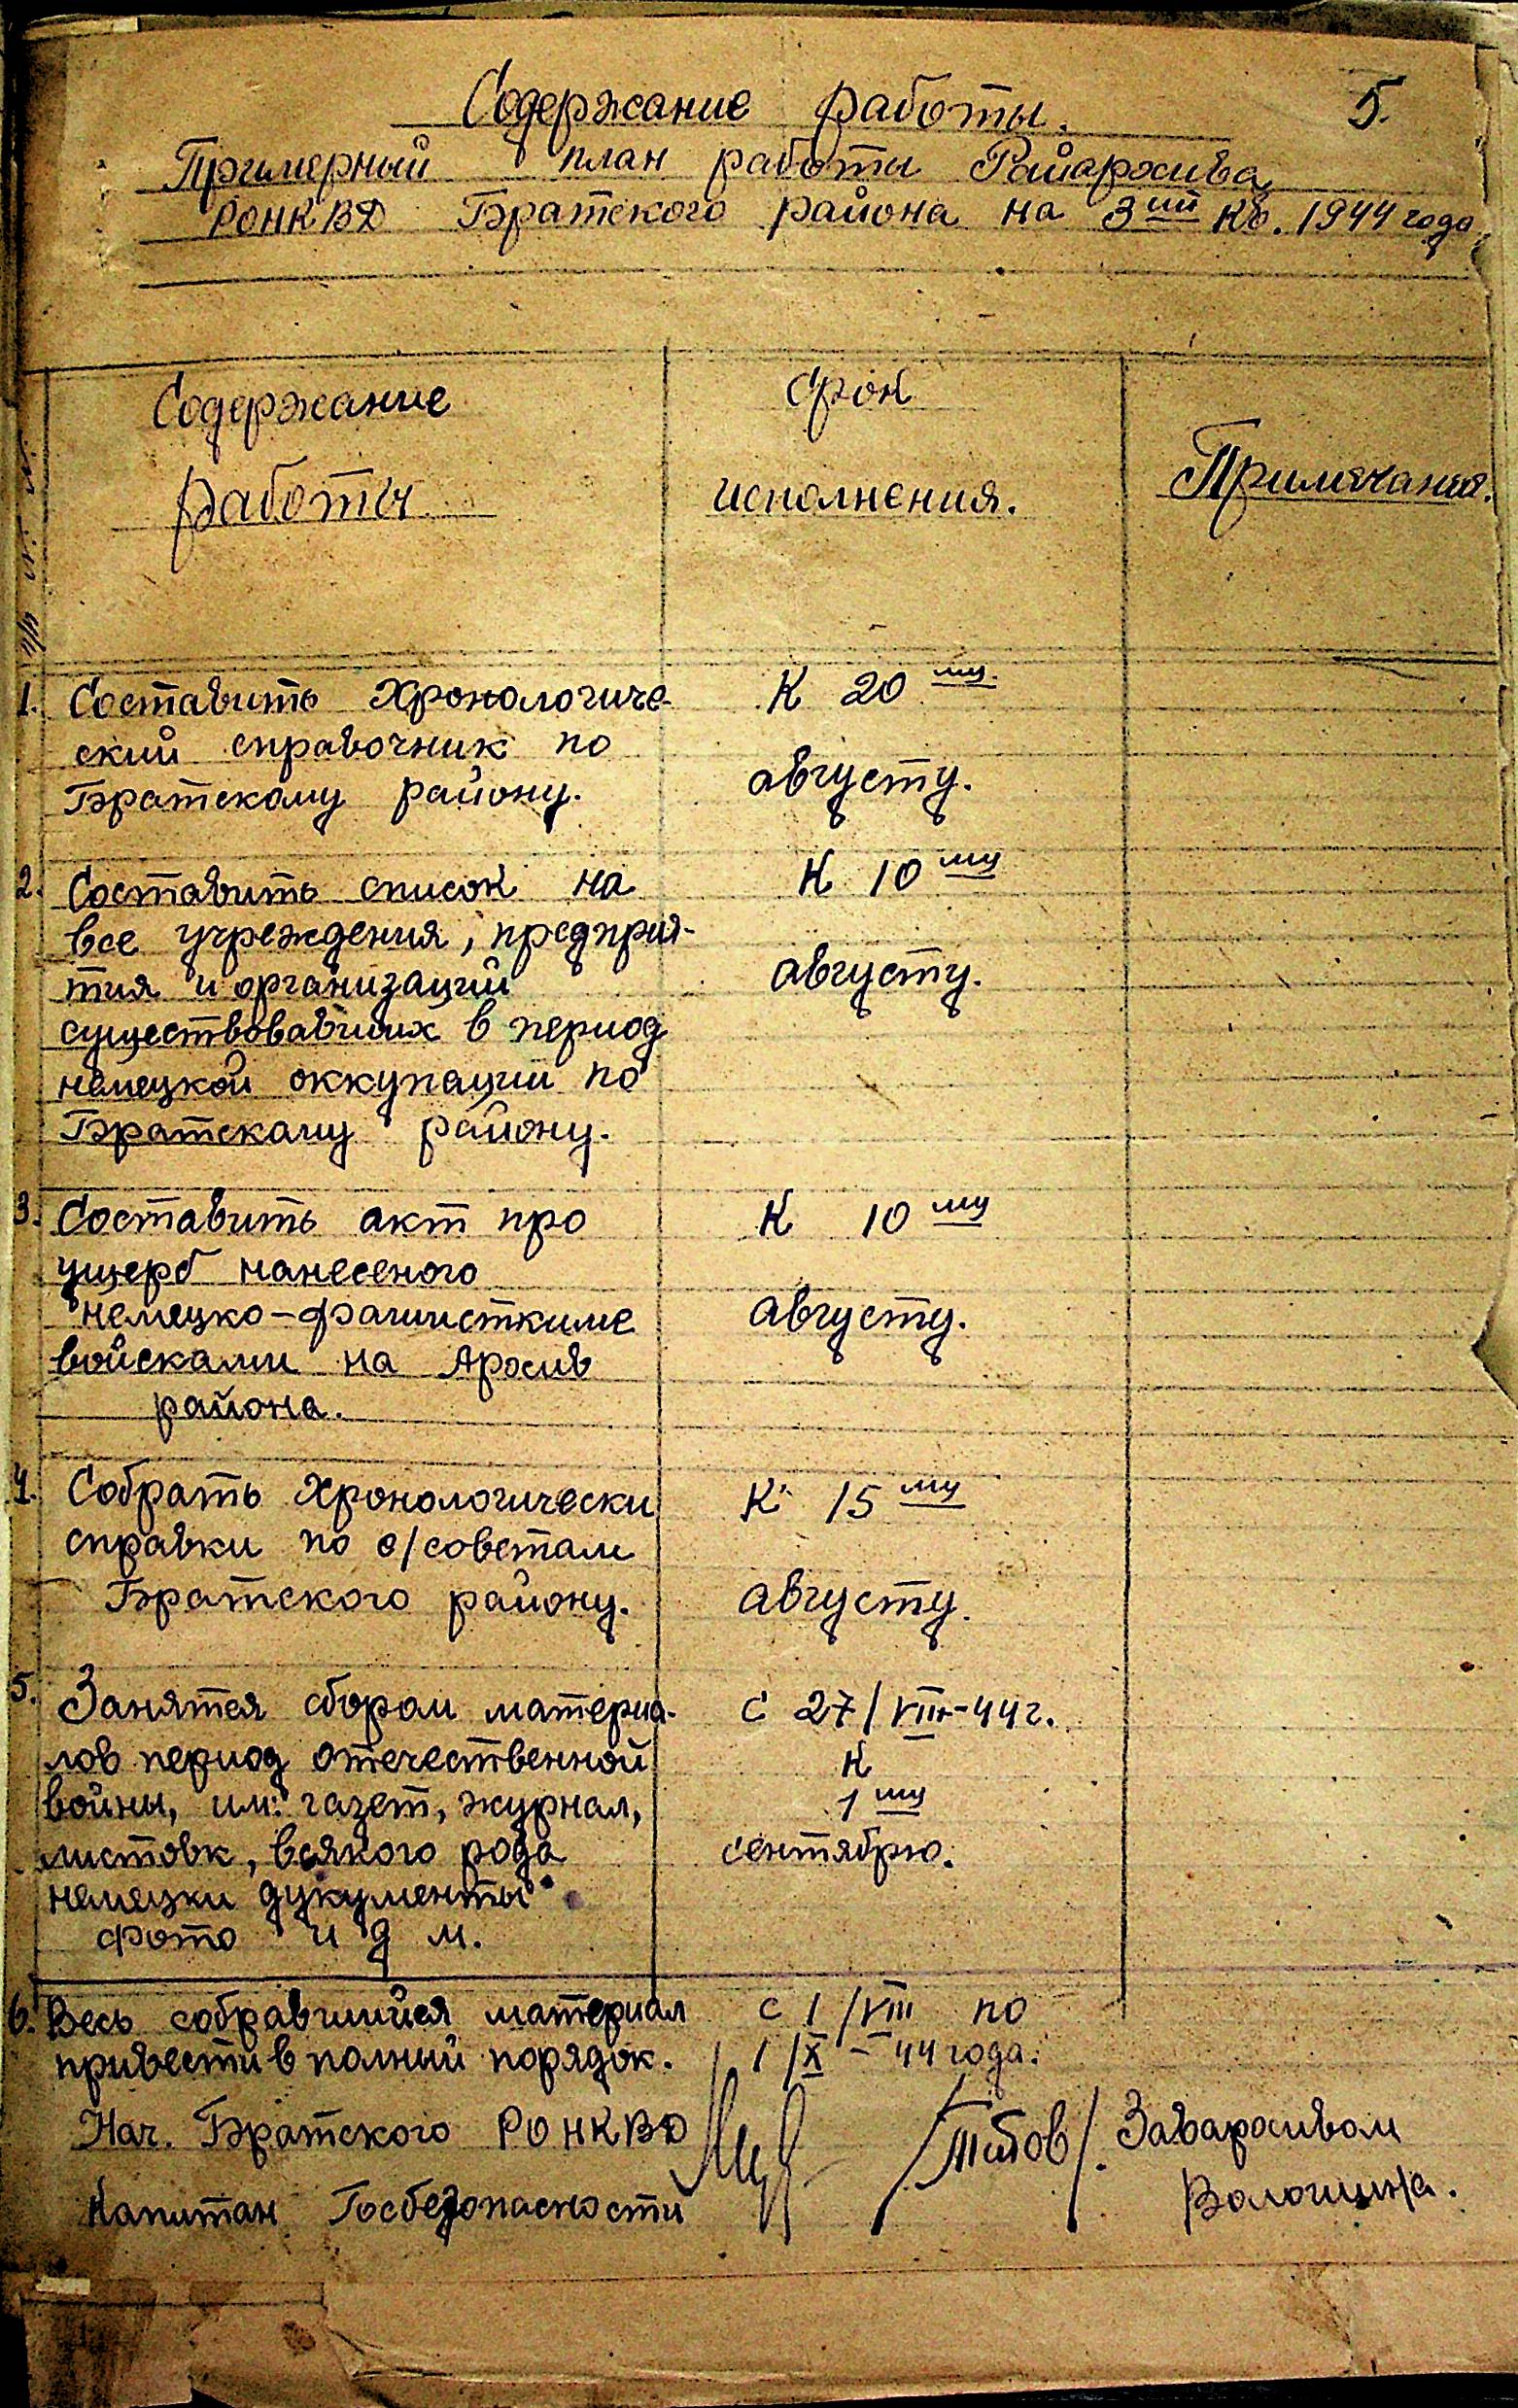 5.
Содержание работы.
Примерный план работы Райархива
РОНКВД Братского района на 3ий кв. 1944 года
Содержание
работы
Срок
исполнения.
Примечания.
1. Составить Хронологиче-
ский справочник по
Братскому району.
К 20му
августу.
2. Составить список на
все учреждения, предприя-
тия и организаций
существовавших в период
немецкой оккупации по
Братскому району.
К 10му
августу.
3. Составить акт про
ущерб нанесеного
немецко-фашисткиме
войсками на Архив
района.
К 10му
августу.
4. Собрать Хронологически
справки по с/советам
Братского району.
К 15му
августу.
5. Занятся сбором материа-
лов период отечественной
войны, им: газет, журнал,
листовк, всякого рода
немецки дукументы
фото и д м.
С 27/VIII-44г.
К
1му
сентябрю.
6. Весь собравшийся материал
привести в полный порядок.
с 1/VIII по
1/X - 44 года.
Нач. Братского РОНКВД
Капитан Госбезопасности
/Титов/.
Завархивом
Вологщука.